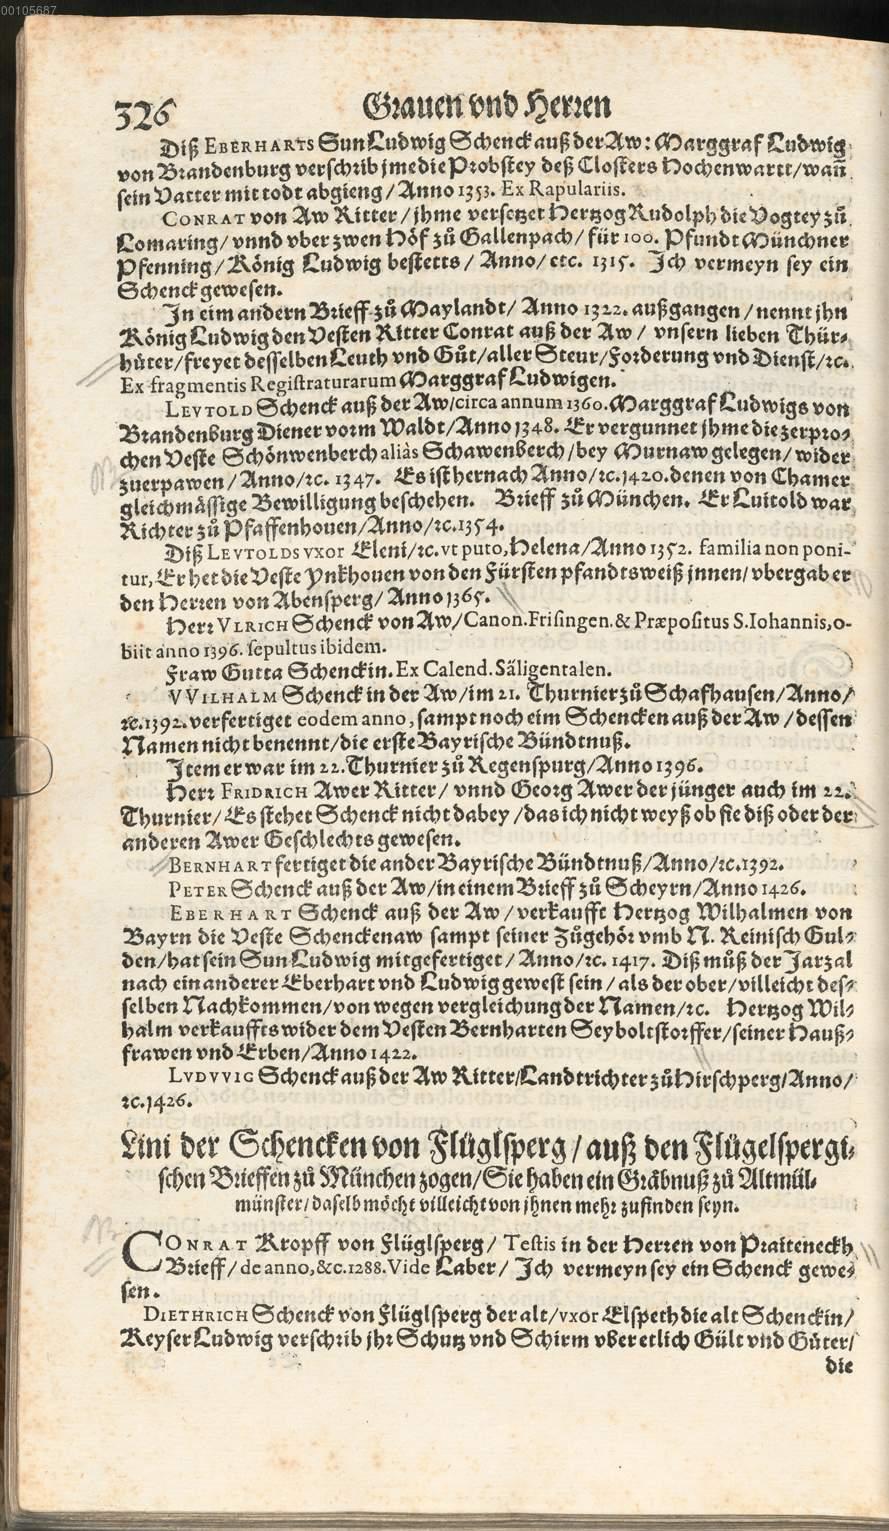 00105687
326 Grauen vnd Herren
Diß EBERHARTS Sun Ludwig Schenck auß der Aw: Marggraf Ludwig
von Brandenburg verschrib jme die Probstey deß Closters Hochenwartt/wañ
sein Vatter mit todt abgieng/Anno 1353. Ex Rapulariis.
CONRAT von Aw Ritter/jhme versetzet Hertzog Rudolph die Vogtey zů
Lomaring/vnnd vber zwen Höf zů Gallenpach/für 100. Pfundt Münchner
Pfenning/König Ludwig bestetts/Anno/etc. 1315. Ich vermeyn sey ein
Schenck gewesen.
In eim andern Brieff zů Maylandt/Anno 1322. außgangen/nennt jhn
König Ludwig den Vesten Ritter Conrat auß der Aw/vnsern lieben Thür-
hüter/freyet desselben Leuth vnd Gůt/aller Steur/Forderung vnd Dienst/ꝛc.
Ex fragmentis Registraturarum Marggraf Ludwigen.
LEVTOLD Schenck auß der Aw/circa annum 1360. Marggraf Ludwigs von
Brandenburg Diener vorm Waldt/Anno 1348. Er vergunnet jhme die zerpro-
chen Veste Schönwenberch aliàs Schawenberch/bey Murnaw gelegen/wider
zuerpawen/Anno/ꝛc. 1347. Es ist hernach Anno/ꝛc. 1420. denen von Chamer
gleichmässige Bewilligung beschehen. Brieff zů München. Er Luitold war
Richter zů Pfaffenhouen/Anno/ꝛc. 1354.
Diß LEVTOLDS vxor Eleni/ꝛc. vt puto, Helena/Anno 1352. familia non poni-
tur, Er het die Veste Ynkhouen von den Fürsten pfandtsweiß jnnen/vbergab er
den Herren von Abensperg/Anno 1365.
Herr VLRICH Schenck von Aw/Canon. Frisingen. & Præpositus S. Iohannis, o-
biit anno 1396. sepultus ibidem.
Fraw Gutta Schenckin. Ex Calend. Säligentalen.
VVILHALM Schenck in der Aw/im 21. Thurnier zů Schafhausen/Anno/
ꝛc. 1392. verfertiget eodem anno, sampt noch eim Schencken auß der Aw/dessen
Namen nicht benennt/die erste Bayrische Bündtnuß.
Item er war im 22. Thurnier zů Regenspurg/Anno 1396.
Herr FRIDRICH Awer Ritter/vnnd Georg Awer der jünger auch im 22.
Thurnier/Es stehet Schenck nicht dabey/das ich nicht weyß ob sie diß oder der
anderen Awer Geschlechts gewesen.
BERNHART fertiget die ander Bayrische Bündtnuß/Anno/ꝛc. 1392.
PETER Schenck auß der Aw/in einem Brieff zů Scheyrn/Anno 1426.
EBERHART Schenck auß der Aw/verkaufft Hertzog Wilhalmen von
Bayrn die Veste Schenckenaw sampt seiner Zůgehör vmb N. Reinisch Gul-
den/hat sein Sun Ludwig mitgefertiget/Anno/ꝛc. 1417. Diß můß der Jarzal
nach ein anderer Eberhart vnd Ludwig gewest sein/als der ober/villeicht des-
selben Nachkommen/von wegen vergleichung der Namen/ꝛc. Hertzog Wil-
halm verkauffts wider dem Vesten Bernharten Seyboltstorffer/seiner Hauß-
frawen vnd Erben/Anno 1422.
LVDVVIG Schenck auß der Aw Ritter/Landtrichter zů Hirschperg/Anno/
ꝛc. 1426.
Lini der Schencken von Flüglsperg/auß den Flügelspergi-
schen Brieffen zů München zogen/Sie haben ein Gräbnuß zů Altmül-
münster/daselb möcht villeicht von jhnen mehr zufinden seyn.
CONRAT Kropff von Flüglsperg/Testis in der Herren von Praiteneckh
Brieff/de anno, &c. 1288. Vide Laber/Ich vermeyn sey ein Schenck gewe-
sen.
DIETHRICH Schenck von Flüglsperg der alt/vxor Elspeth die alt Schenckin/
Keyser Ludwig verschrib jhr Schutz vnd Schirm vber etlich Gült vnd Güter/
die